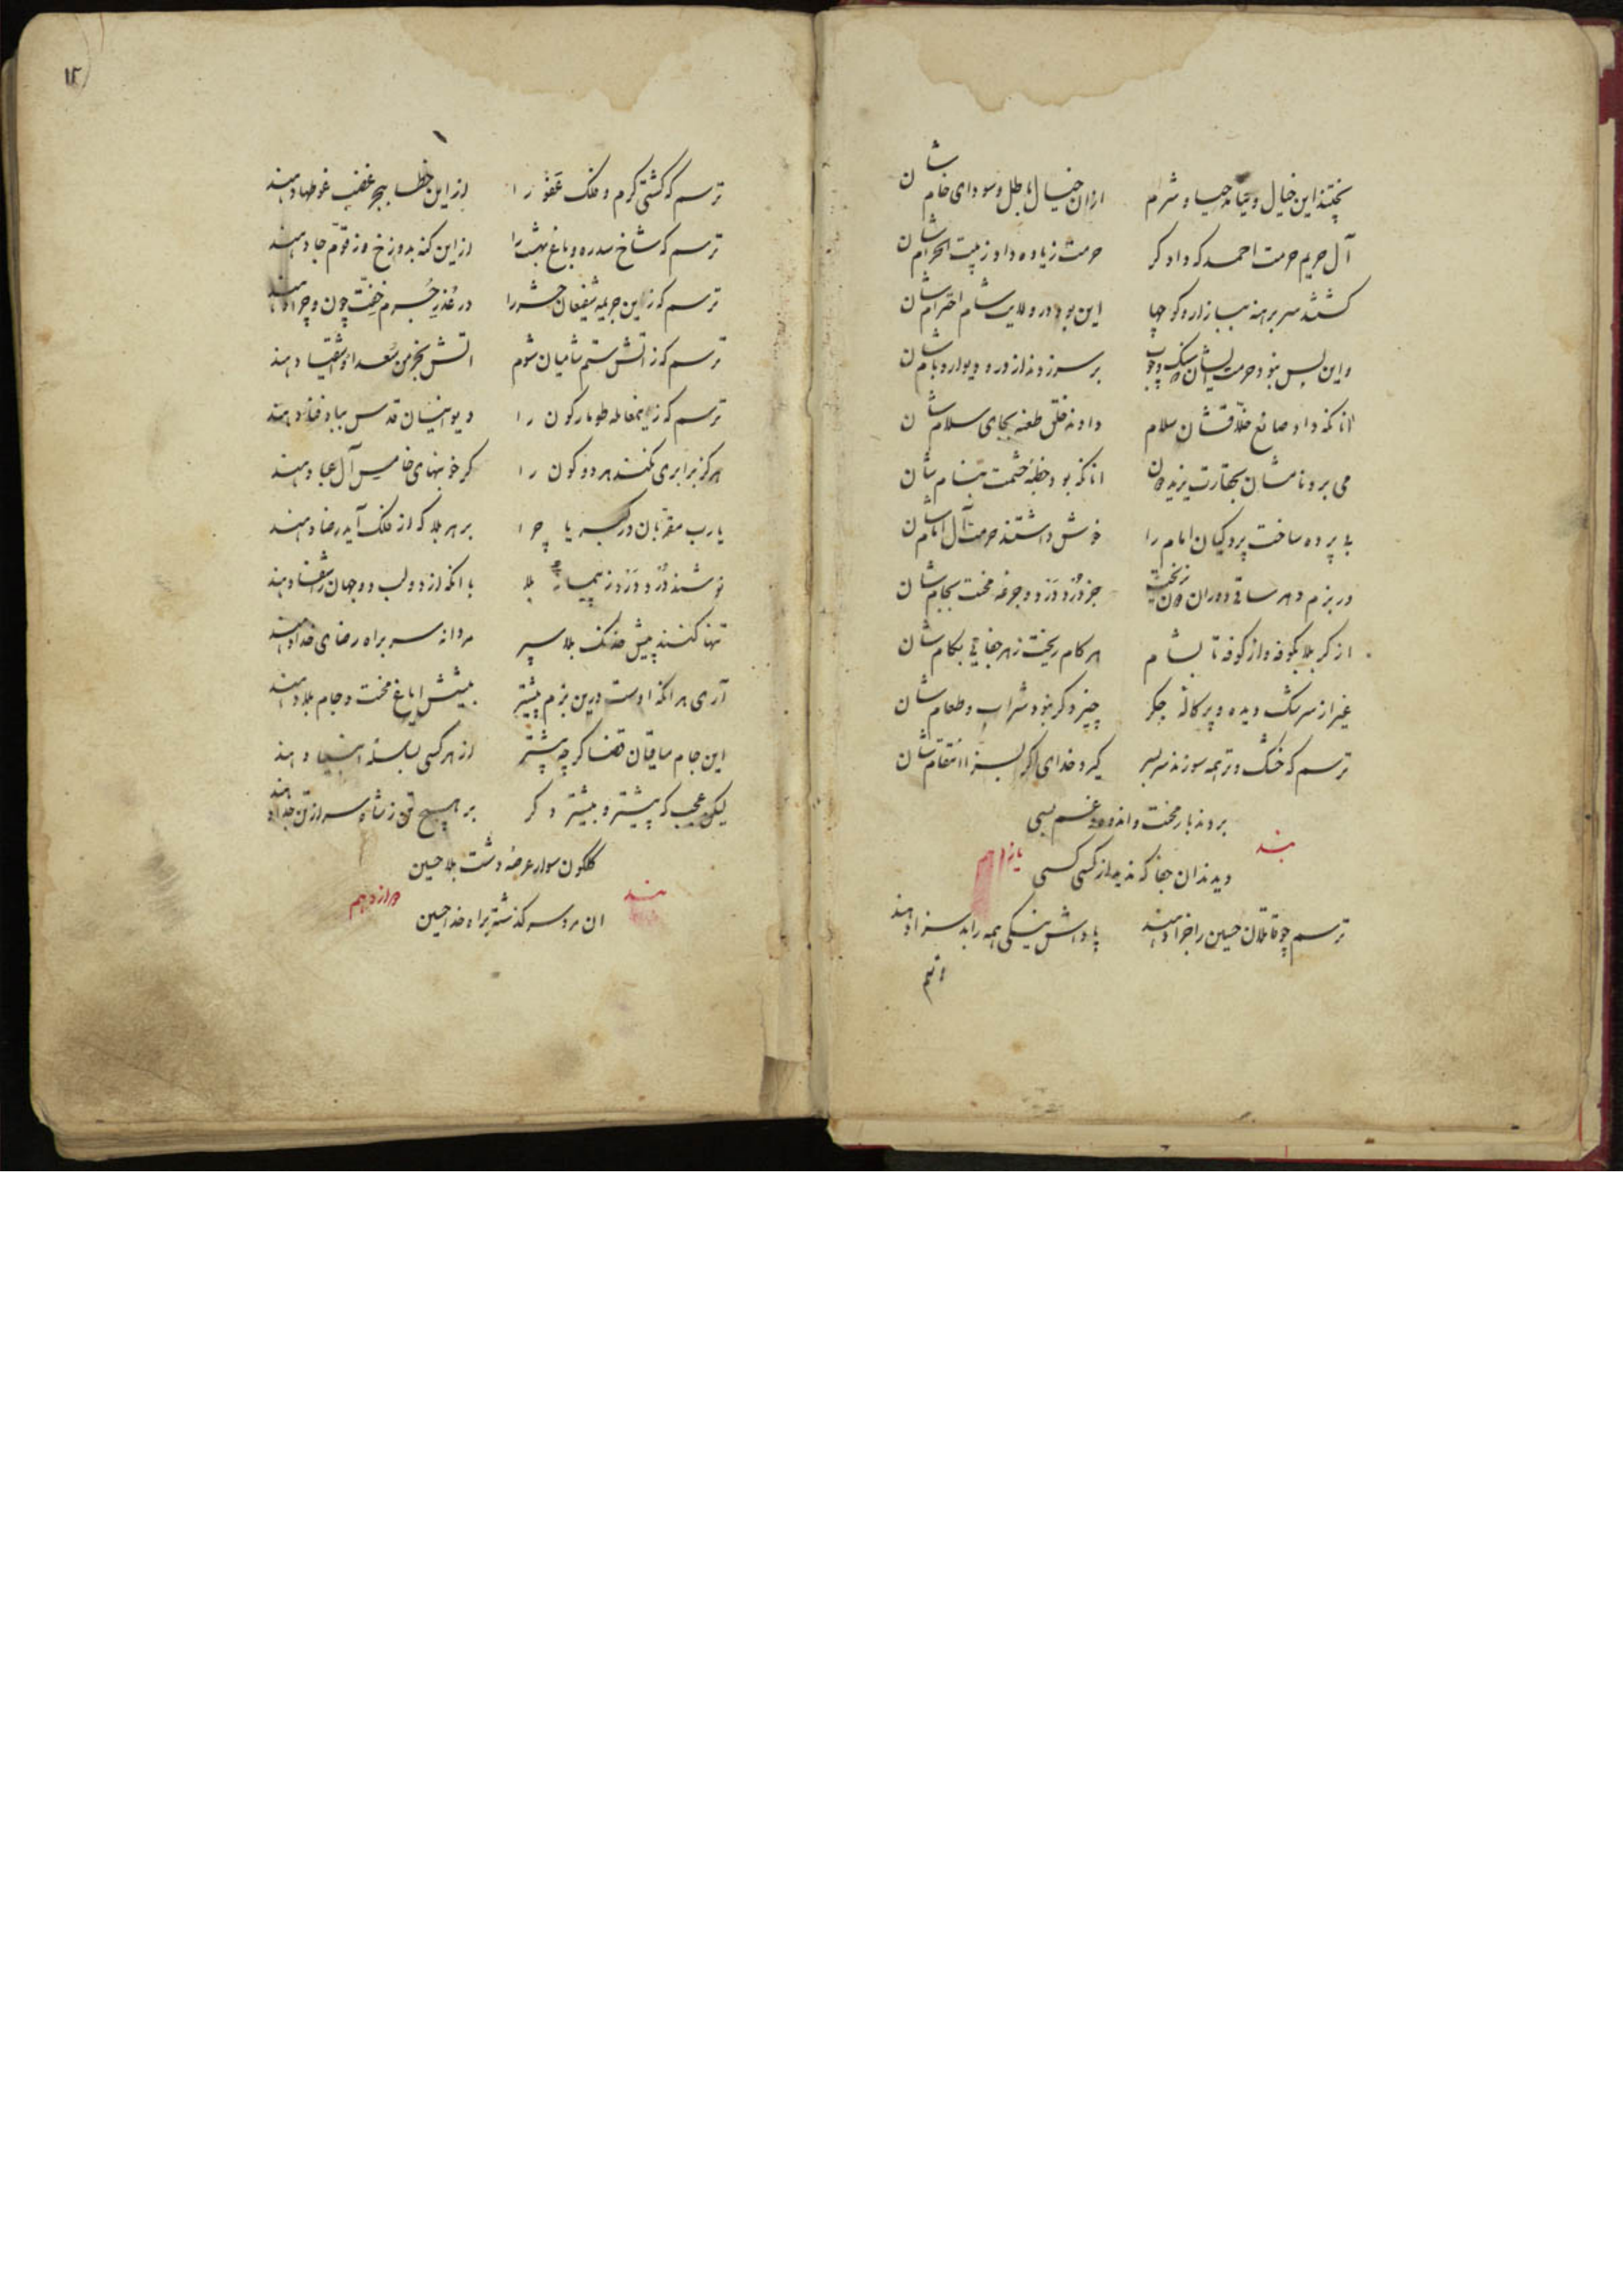 پختند این خیال و حیا و شرم ازان خیال باطل و سودای خام شان
آل حریم حرمت احمد که داد کر حرمت زیاده داور بیت الحرام شان
کشتند سر برهنه ببازار و کوچها این بود در ولایت شام احترام شان
واین بس نبود حرمت ایشان که سنک و چوب بر سر زدند از در و دیوار و بام شان
انانکه داد صانع خلاقشان سلام دادند خلق طعنه بجای سلام شان
می برد نامشان بحقارت یزید دون انانکه بود خطبهٔ حشمت بنام شان
بی پرده ساخت پردکیان امام را خوش داشتند حرمت آل امام شان
در بزم دهر ساقی دوران دون نریخت جز دُرد دَرد و جرعه محنت بجام شان
از کربلا بکوفه و از کوفه تا بشام هر کام ریخت زهر جفایی بکام شان
غیر از سرشک دیده و پرکالهٔ جکر چیز دکر نبود شراب و طعام شان
ترسم که خشک و تر همه سوزند سر بسر کیرد خدای اکر بسزا انتقام شان
بردند بار محنت و اندوه و غم بسی
بند یازدهم
دیدند ان جفا که ندید از کسی کسی
ترسم چو قاتلان حسین را جزا دهند پاداش نیکی همه را بد سزا دهند
ترسم
۱۲
ترسم که کشتی کرم و فلک عَفو را از این خطا ببحر غضب غوطها دهند
ترسم که شاخ سدره و باغ بهشت را از این کنه بدوزخ و زقوّم جا دهند
ترسم که زین جریمه شفیعان حشر را در عُذرِ جُرم خِفّت چون و چرا دهند
ترسم که ز اتش ستم شامیان شوم اتش بخرمن سُعدا و اشقیا دهند
ترسم که زینمعامله طومار کون را دیوانیان قدس بباد فنا دهند
هرکز برابری نکنند هر دو کون را کر خونبهای خامس آل عبا دهند
یارب مقربان در کبریا چرا بر هر بلا که از فلک آید رضا دهند
نوشند دُرد دَرد ز پیمانهٔ بلا با انکه از دو لب دو جهان را شفا دهند
تنها کنند پیش خدنک بلا سپر مردانه سر براه رضای خدا دهند
آری هر انکه اوست درین بزم پیشتر بیشش ایاغ محنت و جام بلا دهند
این جام ساقیان قضا کرچه پیشتر از هر کسی بسلسلهٔ انبیا دهند
لیکن عجب که پیشتر و بیشتر دکر بر هیچ تن ز شاه سر از تن جدا دهند
کلکون سوار عرصهٔ دشت بلا حسین
بند دوازدهم
ان مرد سر کذشته براه خدا حسین